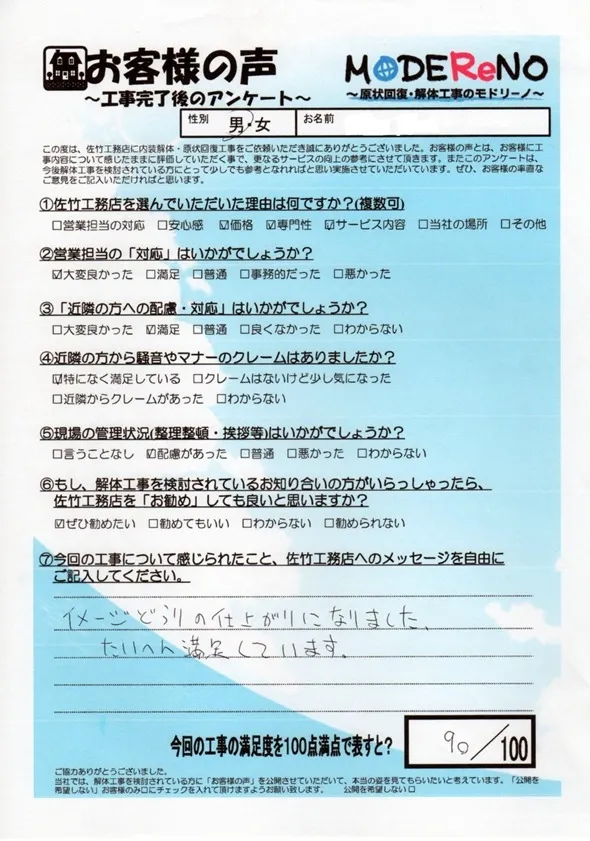 お客様の声
～工事完了後のアンケート～
MODEReNO
～原状回復・解体工事のモドリーノ～
性別 男・女 お名前
この度は、佐竹工務店に内装解体・原状回復工事をご依頼いただき誠にありがとうございました。お客様の声とは、お客様に工
事内容について感じたままに評価していただく事で、更なるサービスの向上の参考にさせて頂きます。またこのアンケートは、
今後解体工事を検討されている方にとって少しでも参考となればと思い実施させていただいています。ぜひ、お客様の率直な
ご意見をご記入いただければと思います。
①佐竹工務店を選んでいただいた理由は何ですか？(複数可)
□営業担当の対応 □安心感 ☑価格 ☑専門性 ☑サービス内容 □当社の場所 □その他
②営業担当の「対応」はいかがでしょうか？
☑大変良かった □満足 □普通 □事務的だった □悪かった
③「近隣の方への配慮・対応」はいかがでしょうか？
□大変良かった ☑満足 □普通 □良くなかった □わからない
④近隣の方から騒音やマナーのクレームはありましたか？
☑特になく満足している □クレームはないけど少し気になった
□近隣からクレームがあった □わからない
⑤現場の管理状況(整理整頓・挨拶等)はいかがでしょうか？
□言うことなし ☑配慮があった □普通 □悪かった □わからない
⑥もし、解体工事を検討されているお知り合いの方がいらっしゃったら、
佐竹工務店を「お勧め」しても良いと思いますか？
☑ぜひ勧めたい □勧めてもいい □わからない □勧められない
⑦今回の工事について感じられたこと、佐竹工務店へのメッセージを自由に
ご記入してください。
イメージどうりの仕上がりになりました、
たいへん満足しています。
今回の工事の満足度を100点満点で表すと？ 90／100
ご協力ありがとうございました。
当社では、解体工事を検討されている方に「お客様の声」を公開させていただいて、本当の姿を見てもらいたいと考えています。「公開を
希望しない」お客様のみ□にチェックを入れて頂けますようお願い致します。 公開を希望しない □